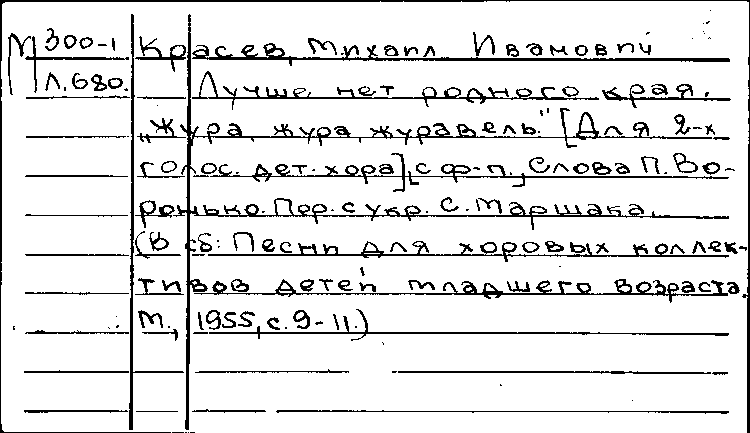 М 300-1 Красев, Михаил Иванович
Л.680. Лучше нет родного края.
„Жура, жура, журавель." [Для 2-х
голос. дет. хора], с ф-п., Слова П. Во-
ронько. Пер. с укр. С. Маршака.
(В сб: Песни для хоровых коллек-
тивов детей младшего возраста.
М., 1955, с. 9-11.)